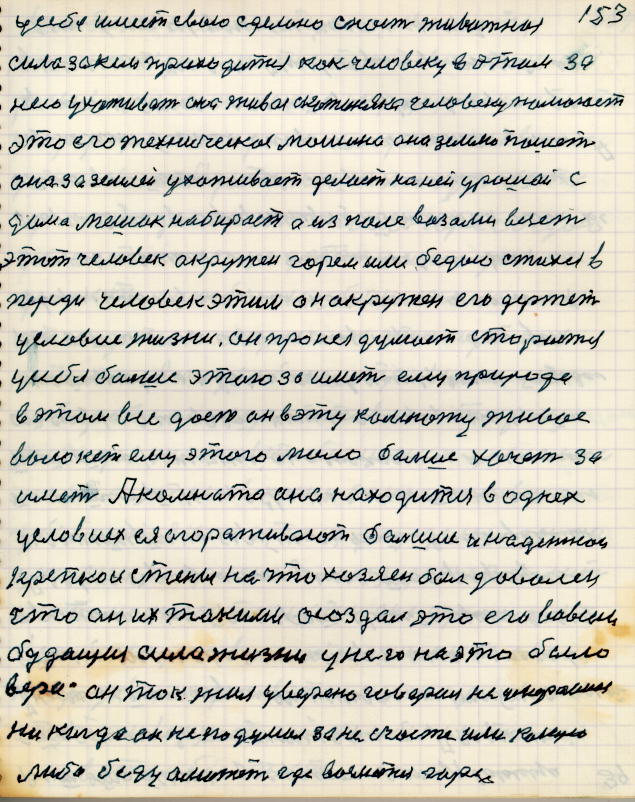 153
у себе имеет свою сделано скот животных
сила за кем приходится как человеку в этом за
него ухаживат она живая скотиняка человеку помогает
это его техническая машина она землю пашет
она за землей ухаживает делает на ней урошай с
дома мешок набирает а из поле возами везет
этот человек окружен горем или бедою стихея в
переди человек этим он окружен его держет
условие жизни, он про нея думает старается
у себя болше этого за имет ему природа
в этом все дает он в эту комноту живое
волокет ему этого мало болше хочет за
имет А комната она находится в однех
условиех ея огораживают болшие и надежнои
крепкои стены на что хозяен был доволен
что он их такими создал это его вовсем
будащия сила жизни у него на это было
вера. он так жил уверено говорил не
ни когда он не подумал за не счастя или какую
либо беду а может где возмется горе